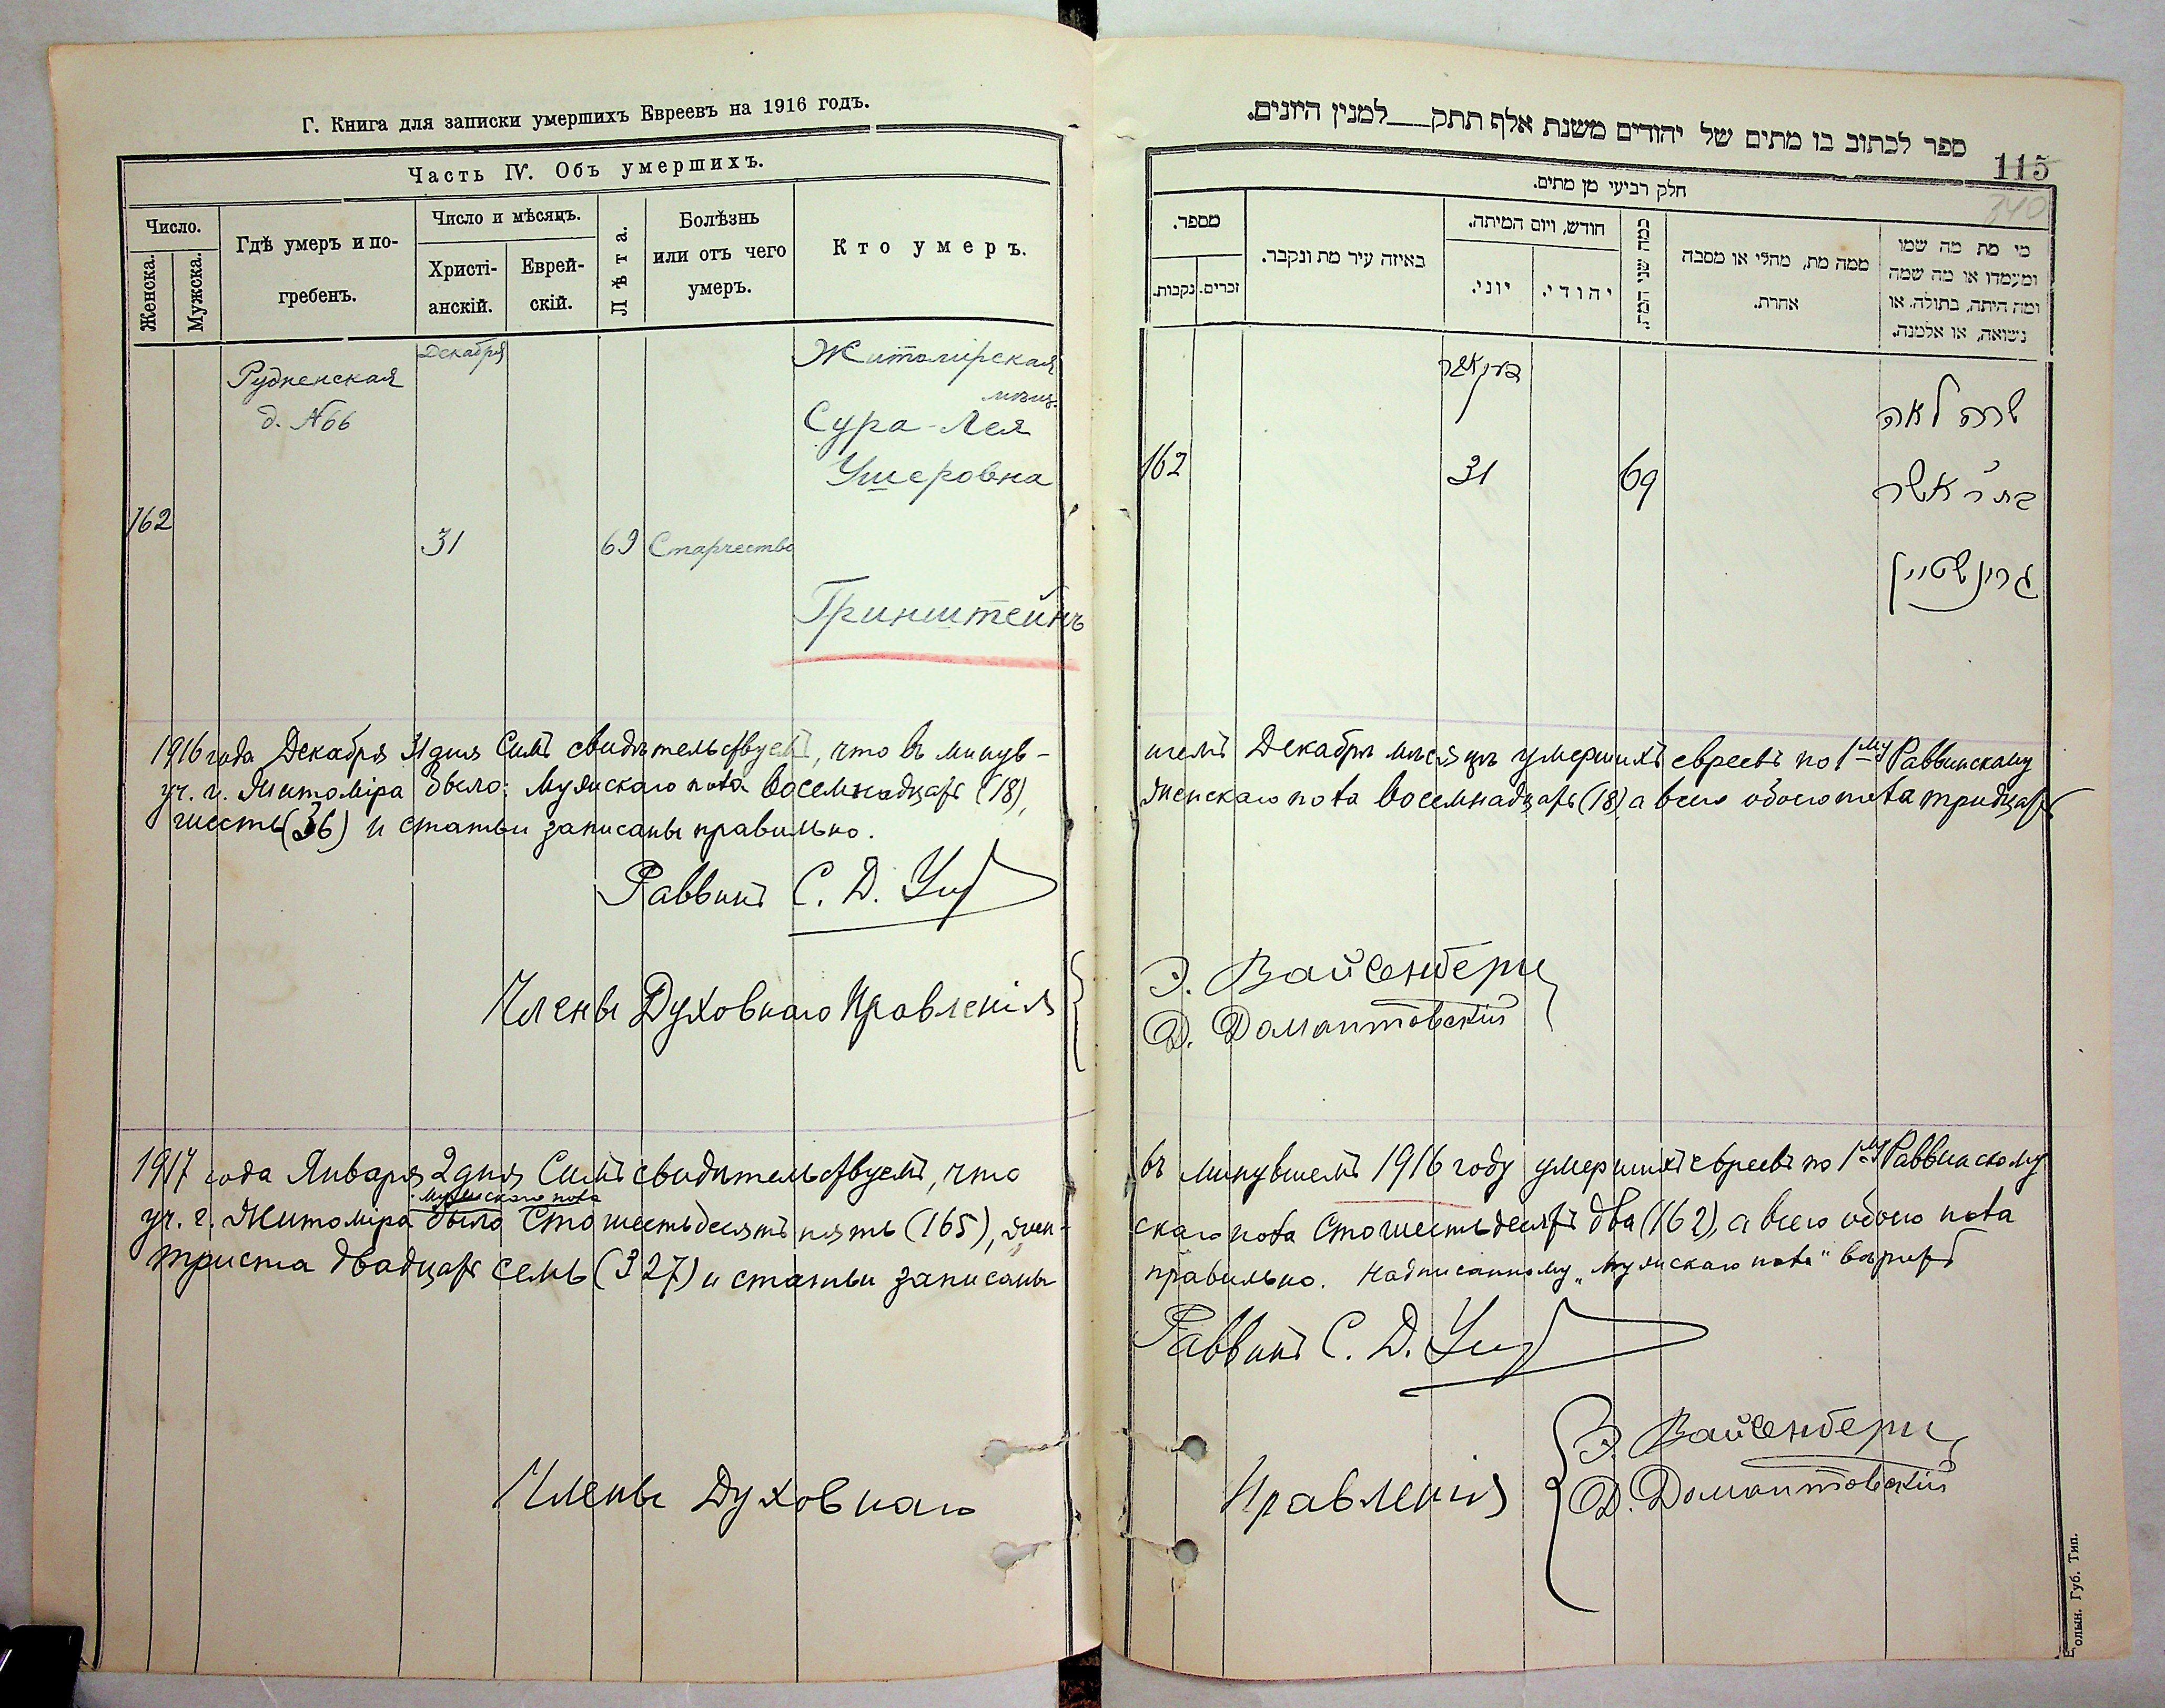 Г. Книга для записки умершихъ Евреевъ на 1916 годъ.
Часть IV. Объ умершихъ.
Число.
Женска.
Мужска.
Гдѣ умеръ и по-
гребенъ.
Число и мѣсяцъ.
Христі-
анскій.
Еврей-
скій.
Лѣта.
Болѣзнь
или отъ чего
умеръ.
Кто умеръ.
Декабря
Рудненская
д. №66
Житомірская
мѣщ.
Сура-Лея
Ушеровна
162
31
69
Старчество
Гринштейнъ
1916 года Декабря 31 дня Симъ свидѣтельствуемъ, что въ минув-
уч. г. Житоміра было: мужскаго пола восемнадцать (18),
шесть (36) и статьи записаны правильно.
Раввинъ С. Д.
Члены Духовнаго Правленія
1917 года Января 2 дня Симъ свидѣтельствуемъ, что
мужскаго пола
уч. г. Житоміра было Сто шестьдесятъ пять (165), жен-
триста двадцать семь (327) и статьи записаны
Члены Духовнаго
ספר לכתוב בו מתים של יהודים משנת אלף תתק__למנין היונים.
115
340
חלק רביעי מן מתים.
מספר.
נקבות.
זכרים.
באיזה עיר מת ונקבר.
חודש, ויום המיתה.
יוני.
יהודי.
כמה שני המת.
ממה מת, מחלי או מסבה
אחרת.
מי מת מה שמו
ומעמדו או מה שמה
ומה היתה, בתולה. או
נשואה, או אלמנה.
דעקאבר
שרה לאה
162
31
69
בת ר' אשר
גרינשטיין
шемъ Декабрѣ мѣсяцѣ умершихъ евреевъ по 1му Раввинскому
женскаго пола восемнадцать (18) а всего обоего пола тридцать
Э. Вайсенбергъ
Д. Домонтовскій
въ минувшемъ 1916 году умершихъ евреевъ по 1му Раввинскому
скаго пола Сто шестьдесятъ два (162), а всего обоего пола
правильно. Надписанному „мужскаго пола" вѣрить
Раввинъ С. Д.
Правленія
Э. Вайсенбергъ
Д. Домонтовскій
олын. Губ. Тип.